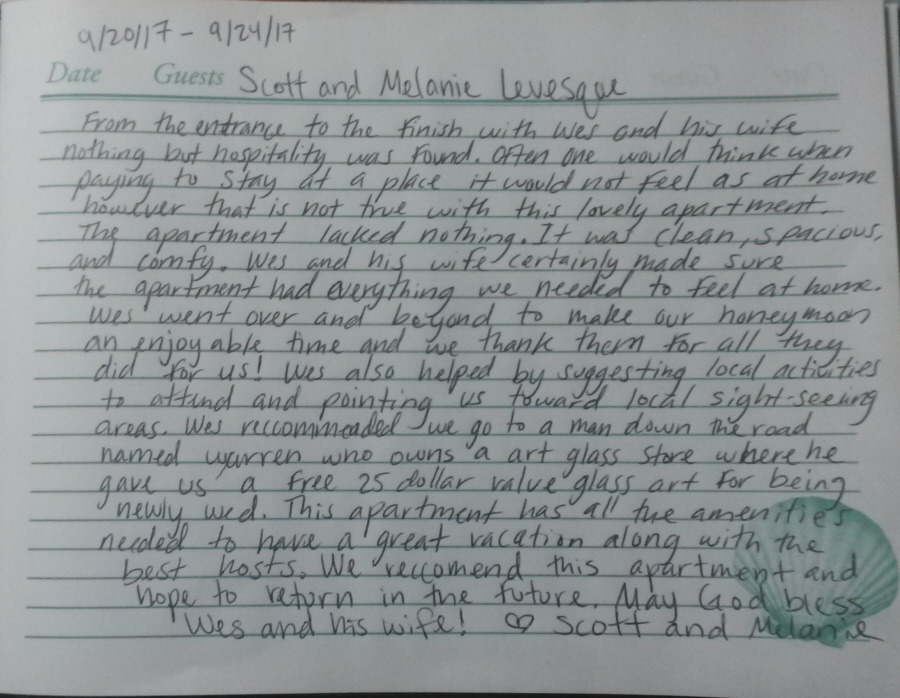 9/20/17 - 9/24/17
Date Guests Scott and Melanie Levesque
From the entrance to the finish with Wes and his wife
nothing but hospitality was found. Often one would think when
paying to stay at a place it would not feel as at home
however that is not true with this lovely apartment.
The apartment lacked nothing. It was clean, spacious,
and comfy. Wes and his wife certainly made sure
the apartment had everything we needed to feel at home.
Wes went over and beyond to make our honeymoon
an enjoyable time and we thank them for all they
did for us! Wes also helped by suggesting local activities
to attend and pointing us toward local sight-seeing
areas. Wes reccommended we go to a man down the road
named Warren who owns a art glass store where he
gave us a free 25 dollar value glass art for being
newly wed. This apartment has all the amenities
needed to have a great vacation along with the
best hosts. We reccomend this apartment and
hope to return in the future. May God bless
Wes and his wife! ♡ Scott and Melanie